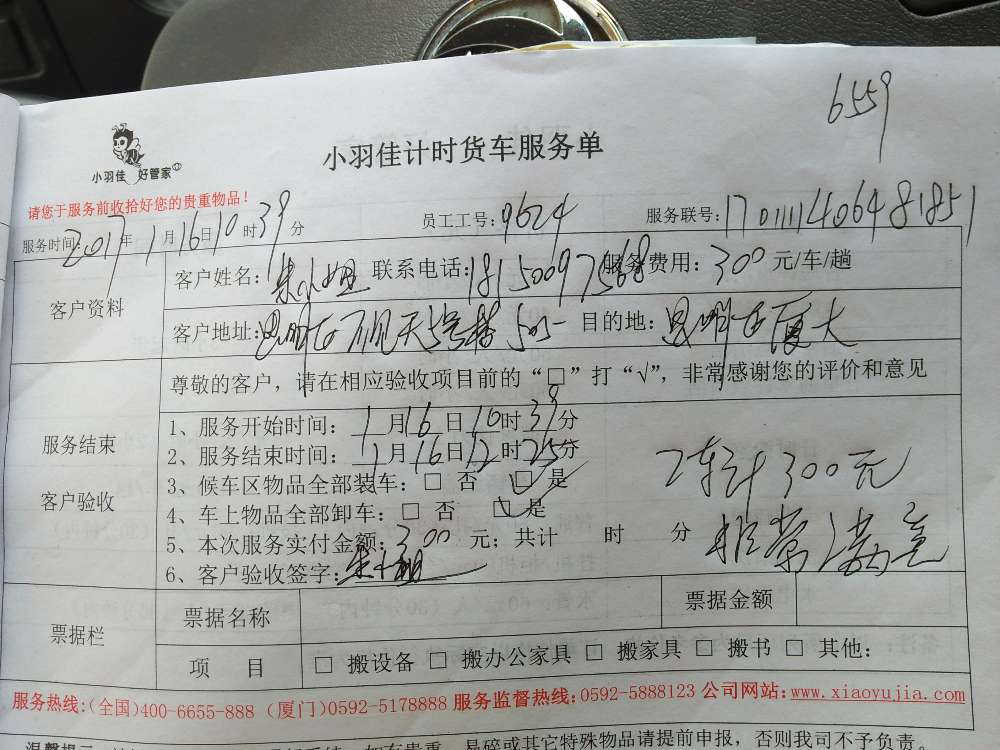 6559
小羽佳 好管家
小羽佳计时货车服务单
请您于服务前收拾好您的贵重物品！
服务时间: 2017年1月16日10时39分 员工工号: 9624 服务联号: 1701111406481851
客户资料
客户姓名: 朱小姐 联系电话: 18150097568 服务费用: 300元/车/趟
客户地址: 昆明 5号楼505 目的地: 昆明 厦大
服务结束
客户验收
尊敬的客户，请在相应验收项目前的“□”打“√”，非常感谢您的评价和意见
1、服务开始时间: 1月16日10时39分
2、服务结束时间: 1月16日12时25分
3、候车区物品全部装车: □ 否 ☑ 是
4、车上物品全部卸车: □ 否 ☑ 是
5、本次服务实付金额: 300元; 共计 时 分
6、客户验收签字: 朱小姐
300元
非常满意
票据栏
票据名称 票据金额
项 目 □ 搬设备 □ 搬办公家具 □ 搬家具 □ 搬书 □ 其他:
服务热线:(全国)400-6655-888 (厦门)0592-5178888 服务监督热线:0592-5888123 公司网站:www.xiaoyujia.com
易碎或其它特殊物品请提前申报，否则我司不予负责。